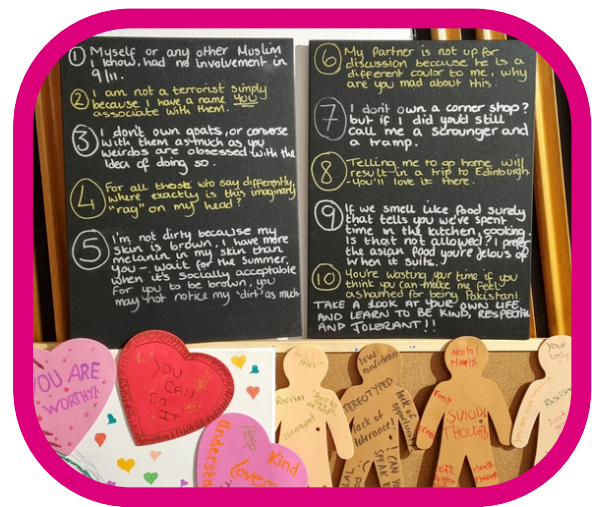 ① Myself or any other Muslim
I know, had no involvement in
9/11.
② I am not a terrorist simply
because I have a name YOU
associate with them.
③ I don't own goats, or converse
with them as much as you
weirdos are obsessed with the
idea of doing so.
④ For all those who say differently,
where exactly is this imaginary
"rag" on my head?
⑤ I'm not dirty because my
skin is brown. I have more
melanin in my skin than
you - wait for the summer,
when it's socially acceptable
for you to be brown, you
may not notice my 'dirt' as much
⑥ My partner is not up for
discussion because he is a
different coulor to me. why
are you mad about this.
⑦ I don't own a corner shop?
but if I did you'd still
call me a scrounger and
a tramp.
⑧ Telling me to go home will
result in a trip to Edinburgh
- You'll love it there.
⑨ If we smell like food surely
that tells you we've spent
time in the kitchen, cooking.
Is that not allowed? I prefer
the asian food you're jelous of
when it suits.
⑩ You're wasting your time if you
think you can make me feel
ashamed for being Pakistani
TAKE A LOOK AT YOUR OWN LIFE
AND LEARN TO BE KIND, RESPECTFUL
AND TOLERANT!!
YOU ARE
WORTHY!
YOU
CAN
DO
IT
Understand
Help
Kind
Love
Racism
Stereotyped
low confidence
STEREOTYPED
lack of
tolerance!
lack of
opportunities
CAN YOU
SPEAK E
Mental
Health
Family
SUICIDAL
THOUGHTS
Health
Your
Ugly
Racism